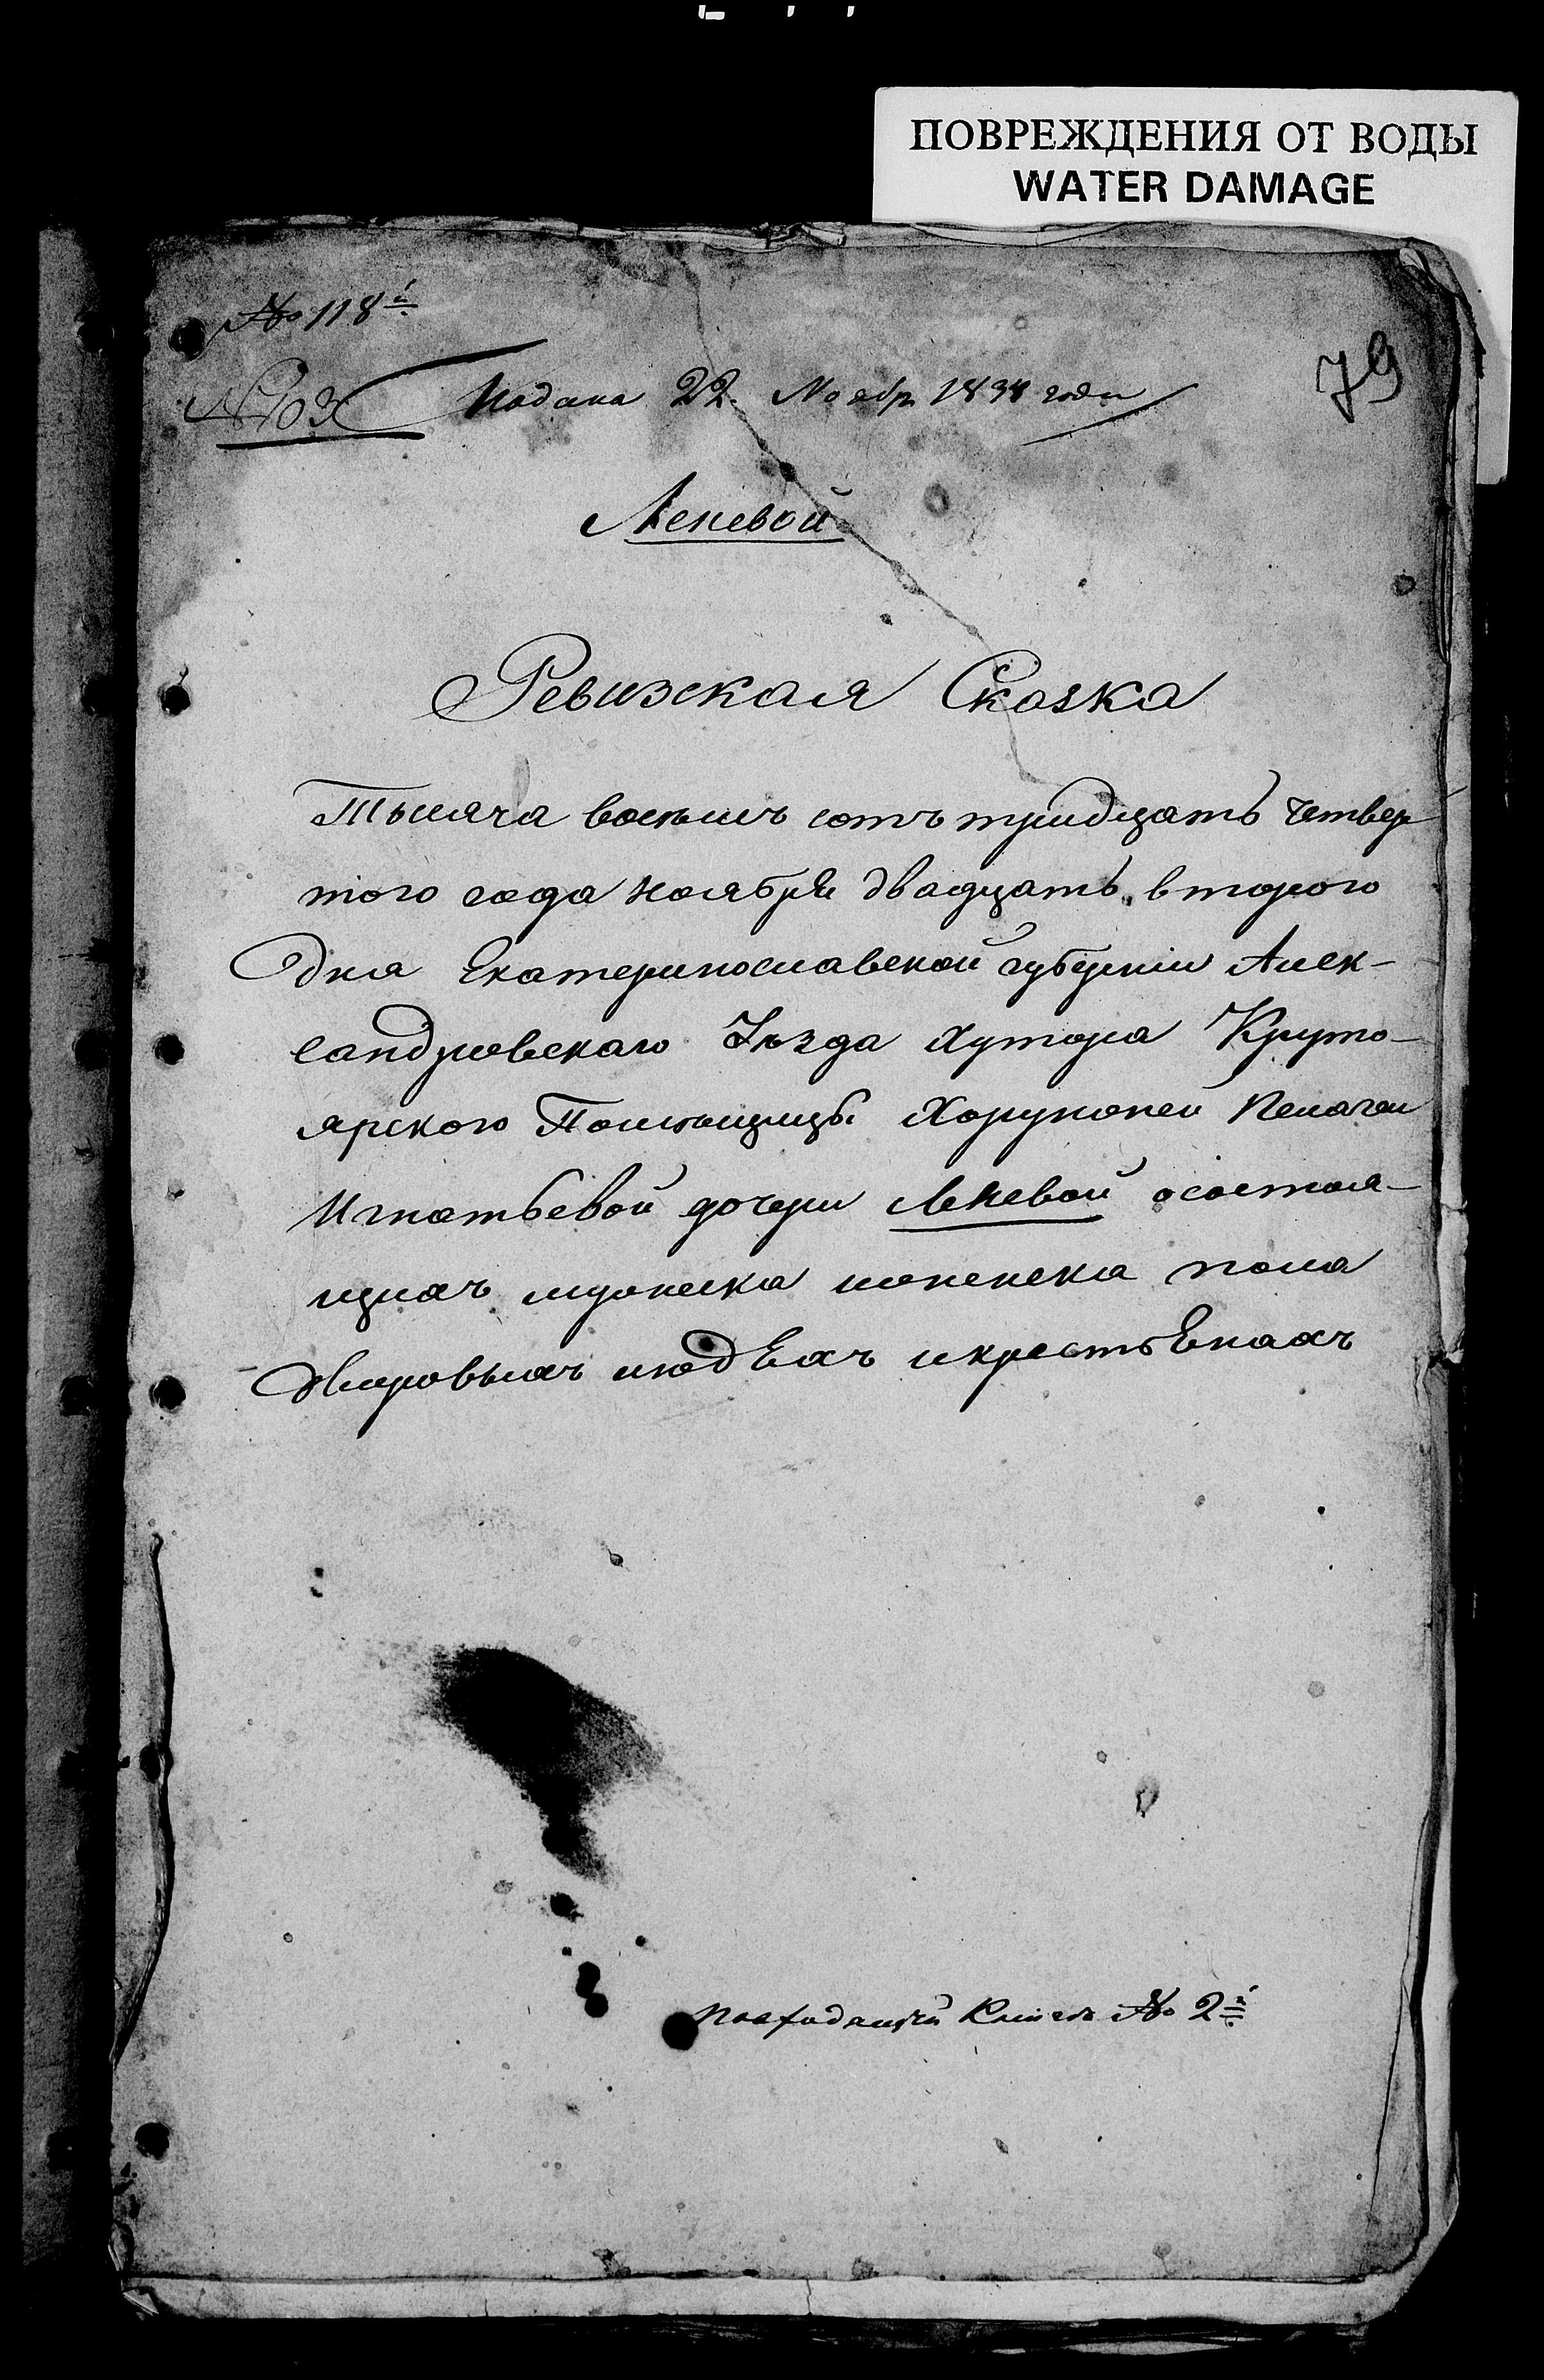 ПОВРЕЖДЕНИЯ ОТ ВОДЫ
WATER DAMAGE
№ 118й
79
№ 103
Подана 22. Ноябр 1834 года
Леневой
Ревизская Сказка
Тысяча восемь сотъ тридцать четвер
того года ноября двадцать второго
дня Екатеринославской губернiи Алек-
сандровскаго Уѣзда хутора Круто-
ярского Помѣщицы Хорунжей Пелагеи
Игнатьевой дочери Леневой осостоя-
щихъ мужеска иженска пола
дворовыхъ людѣхъ икрестьѣнахъ
Повходящей Книгѣ № 2й